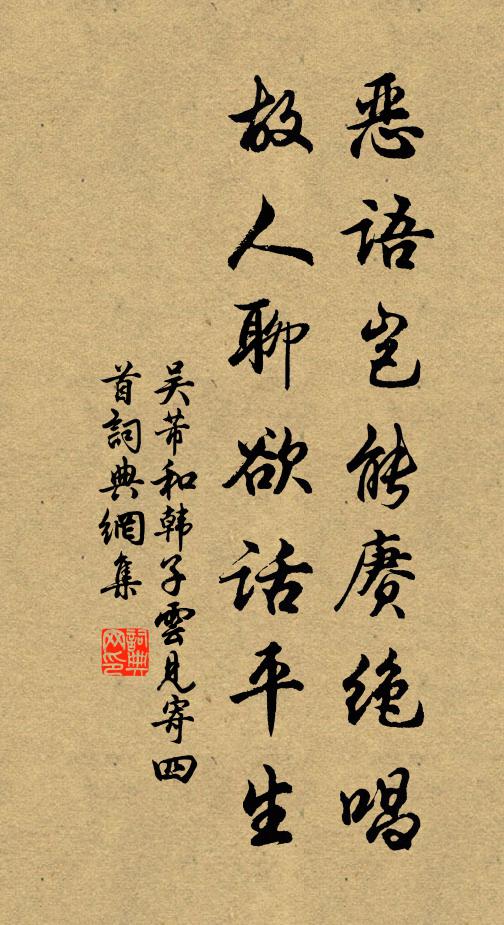 恶语岂能赓绝唱
故人聊欲话平生
吴芾和韩子雲见寄四
首詞典網集
詞典
网印